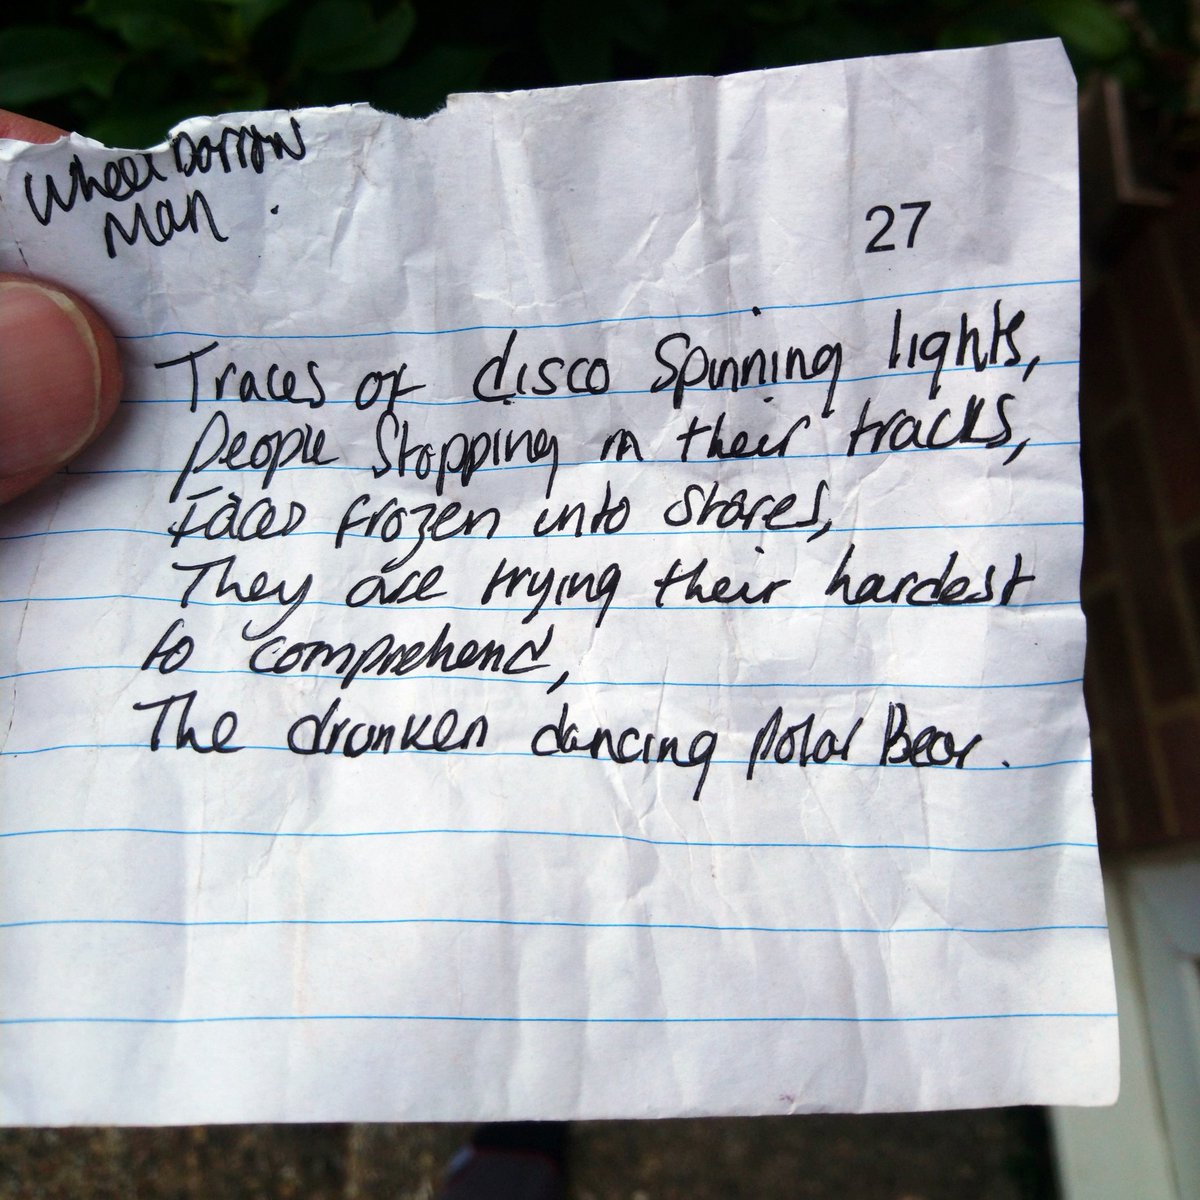 Wheel Barrow
Man .
27
Traces of disco Spinning lights,
People Stopping in their tracks,
Faces frozen into stares,
They are trying their hardest
to comprehend,
The drunken dancing Polar Bear.